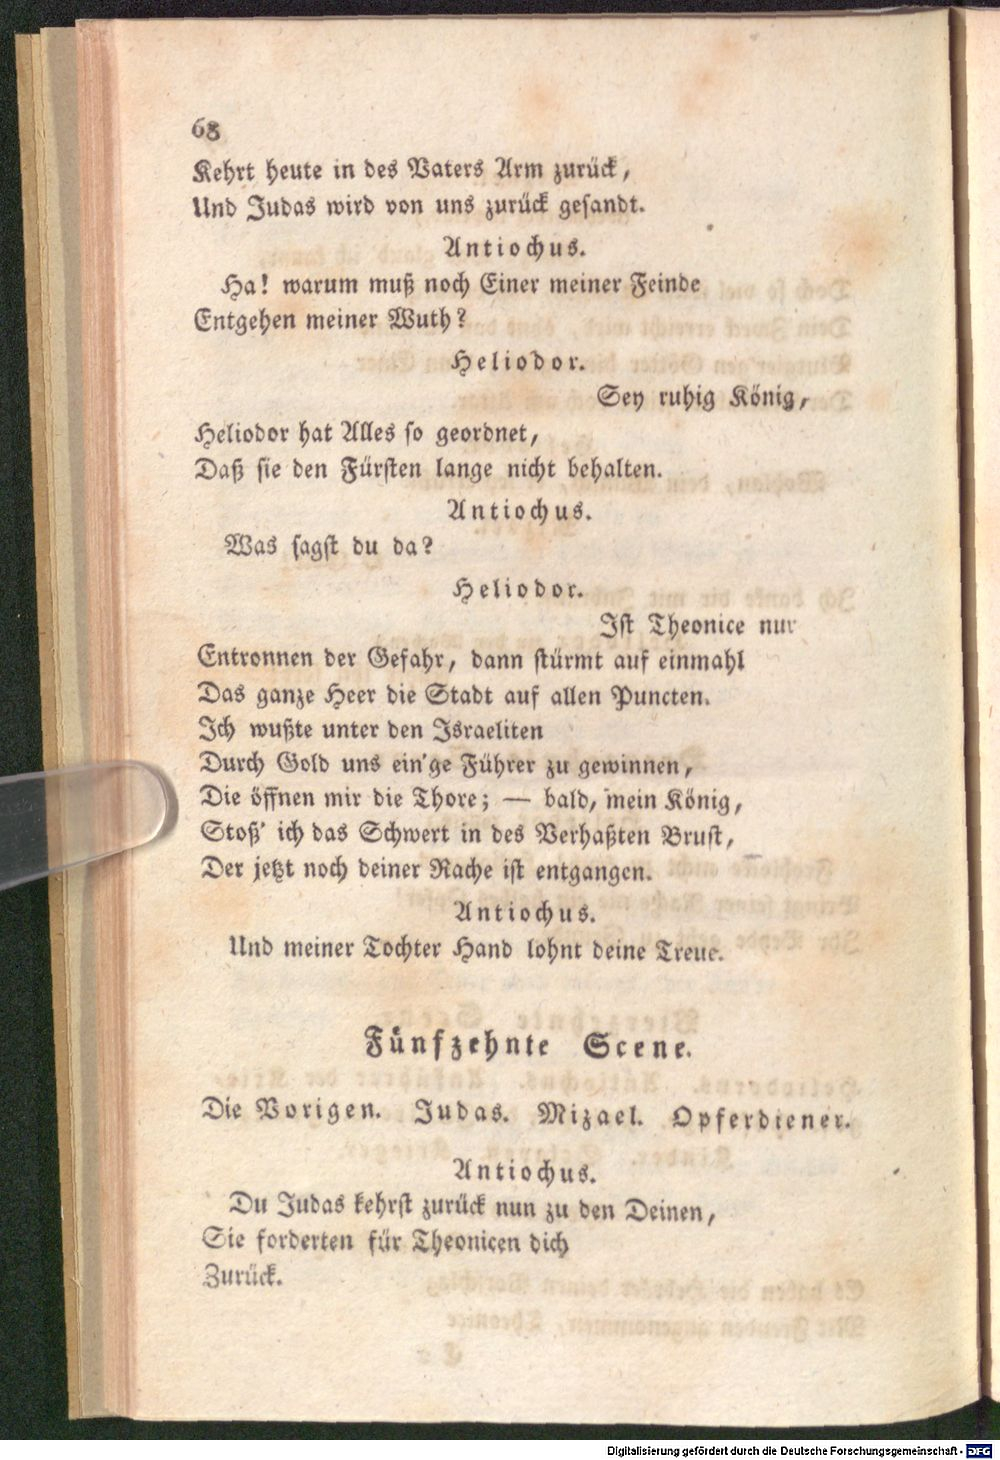 68
Kehrt heute in des Vaters Arm zurück,
Und Judas wird von uns zurück gesandt.
Antiochus.
Ha! warum muß noch Einer meiner Feinde
Entgehen meiner Wuth?
Heliodor.
Sey ruhig König,
Heliodor hat Alles so geordnet,
Daß sie den Fürsten lange nicht behalten.
Antiochus.
Was sagst du da?
Heliodor.
Ist Theonice nur
Entronnen der Gefahr, dann stürmt auf einmahl
Das ganze Heer die Stadt auf allen Puncten.
Ich wußte unter den Israeliten
Durch Gold uns ein'ge Führer zu gewinnen,
Die öffnen mir die Thore; — bald, mein König,
Stoß' ich das Schwert in des Verhaßten Brust,
Der jetzt noch deiner Rache ist entgangen.
Antiochus.
Und meiner Tochter Hand lohnt deine Treue.
Fünfzehnte Scene.
Die Vorigen. Judas. Mizael. Opferdiener.
Antiochus.
Du Judas kehrst zurück nun zu den Deinen,
Sie forderten für Theonicen dich
Zurück.
Digitalisierung gefördert durch die Deutsche Forschungsgemeinschaft - DFG